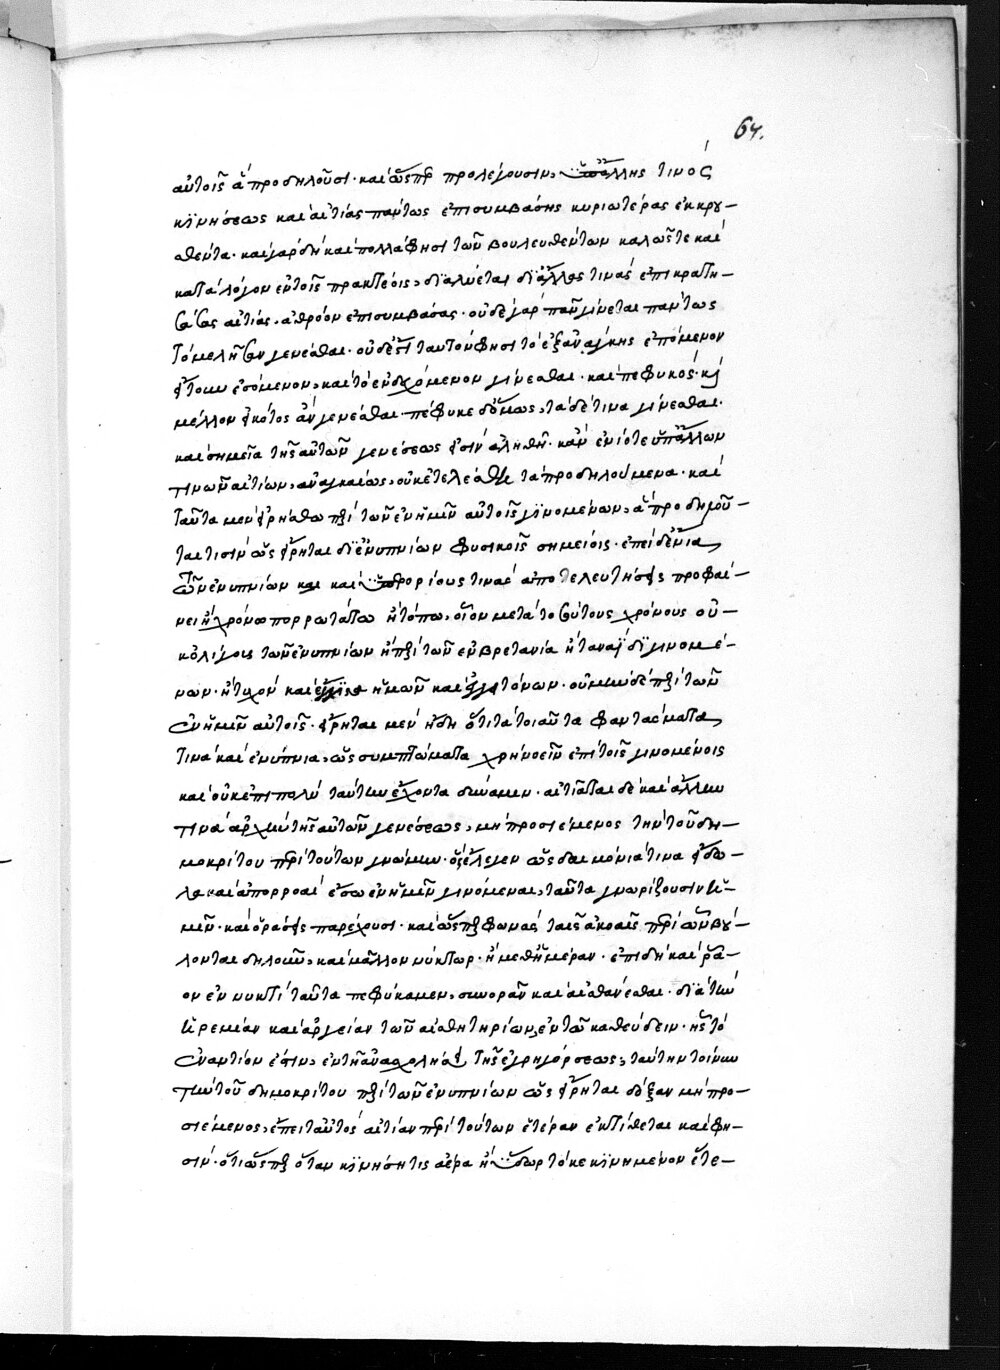 64.
αὐτοῖς ἃ προδηλοῦσι· καὶ ὥσπερ προλέγουσιν, ὑπ' ἄλλης τινὸς
κινήσεως καὶ αἰτίας πάντως ἐπισυμβάσης κυριωτέρας ἐκκρου-
σθέντα· καὶ γὰρ δὴ καὶ πολλά φησι τῶν βουλευθέντων καλῶς τε καὶ
κατὰ λόγον ἐν τοῖς πρακτέοις, διαλύεται δι' ἄλλας τινὰς ἐπικρατη-
σάσας αἰτίας, ἀθρόον ἐπισυμβάσας· οὐδὲ γὰρ πᾶν γίνεται πάντως
τὸ μελῆσαν γενέσθαι· οὐδέ ἐστι ταυτόν φησι τὸ ἐξ ἀνάγκης ἑπόμενον
ἤτοιν ἐσόμενον, καὶ τὸ ἐνδεχόμενον γίνεσθαι· καὶ πεφυκὸς καὶ
μέλλον εἰκότως ἂν γενέσθαι· πέφυκε δ' ὅμως, τάδε τινα γίνεσθαι·
καὶ σημεῖα τῆς αὐτῶν γενέσεως εἰσὶν ἀληθῆ· κἂν ἐνίοτε ὑπ' ἄλλων
τινῶν αἰτίων, ἀναγκαίως, οὐκ ἐτελέσθη τὰ προδηλούμενα· καὶ
ταῦτα μὲν εἰρήσθω περὶ τῶν ἐν ἡμῖν αὐτοῖς γινομένων, ἃ προδηλοῦν-
ται τισὶν ὡς εἴρηται δι' ἐνυπνίων φυσικοῖς σημείοις· ἐπεὶ δ' ἔνια
τῶν ἐνυπνίων καὶ ὑπερορίους τινὰς ἀποτελευτήσεις προφαί-
νει ἢ χρόνῳ πορρωτάτω ἢ τόπω, οἷον μετὰ τοσούτους χρόνους οὐ-
κ ὀλίγοις τῶν ἐνυπνίων ἢ περὶ τῶν ἐν βρετανία ἢ τανάϊδι γινομέ-
νων· ἢ τυχὸν καὶ ἡμῶν καὶ γειτόνων· οὔμιν δὲ περὶ τῶν
ἐν ἡμῖν αὐτοῖς· εἴρηται μὲν ἤδη ὅτι τὰ τοιαῦτα φαντάσματα
τινὰ καὶ ἐνύπνια, ὡς συμπτώματα χρὴ νοεῖν ἐπὶ τοῖς γινομένοις
καὶ οὐκ ἐπιπολὺ ταύτην ἔχοντα δύναμιν· αἰτιᾶται δὲ καὶ ἄλλην
τινὰ ἀρχὴν τῆς αὐτῶν γενέσεως, μὴ προσιέμενος τὴν τοῦ δη-
μοκρίτου περὶ τούτων γνώμην· ὃς ἔλεγεν ὡς δαιμόνιά τινα εἴδω-
λα καὶ ἀπορροαὶ ἔσω ἐν ἡμῖν γινόμεναι, ταῦτα γνωρίζουσιν ἡ-
μῖν· καὶ ὁράσεις παρέχουσι· καὶ ὥσπερ φωνὰς ταῖς ἀκοαῖς περὶ ὧν βού-
λονται δηλοῦν, καὶ μᾶλλον νύκτωρ· ἢ μεθ' ἡμέραν· ἐπιδὴ καὶ ῥᾶ-
ον ἐν νυκτὶ ταῦτα πεφύκαμεν, συνορᾶν καὶ αἰσθάνεσθαι· διὰ τὴν
ἠρεμίαν καὶ ἀργείαν τῶν αἰσθητηρίων, ἐν τῶ καθεύδειν· ἧς τὸ
ἐναντίον ἐστὶν, ἐν τῇ ἀνασχολήσει τῆς ἐγρηγόρσεως, ταύτην τοίνυν
τὴν τοῦ δημοκρίτου περὶ τῶν ἐνυπνίων ὡς εἴρηται δόξαν μὴ προ-
σιέμενος, ἔπειτ' αὐτὸς αἰτίαν περὶ τούτων ἑτέραν ἐκτίθεται καὶ φη-
σίν· ὅτι ὥσπερ ὅταν κινήση τις ἀέρα ἢ ὕδωρ τὸ κεκινημένον ἕτε-